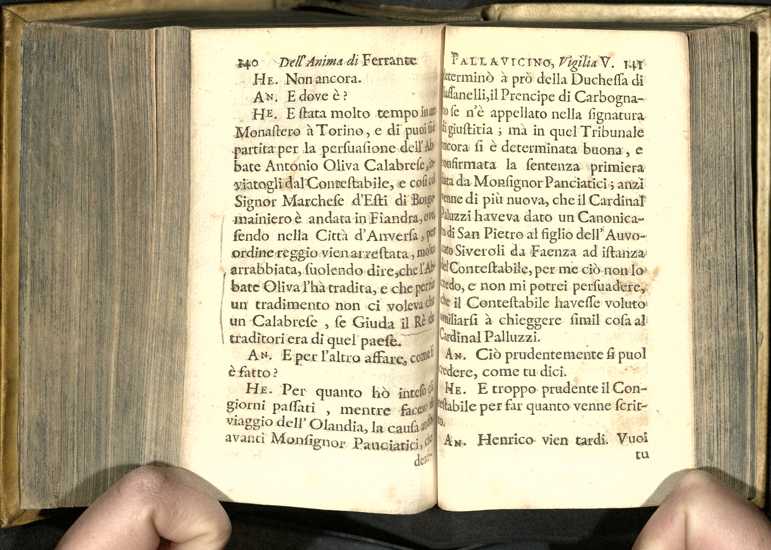 240 Dell'Anima di Ferrante
HE. Non ancora.
AN. E dove è?
HE. E stata molto tempo in
Monastero à Torino, e di puoi
partita per la persuasione dell'
bate Antonio Oliva Calabrese,
viatogli dal Contestabile, e così
Signor Marchese d'Esti di
mainiero è andata in Fiandra,
sendo nella Città d'Anversa, per
ordine reggio vien arrestata,
arrabbiata, suolendo dire, che l'
bate Oliva l'hà tradita, e che
un tradimento non ci voleva
un Calabrese, se Giuda il Rè
traditori era di quel paese.
AN. E per l'altro affare, come
è fatto?
HE. Per quanto hò inteso
giorni passati, mentre
viaggio dell'Olandia, la causa
avanti Monsignor Panciatici,
PALLAVICINO, Vigilia V. 141
terminò à prò della Duchessa di
il Prencipe di Carbogna-
se n'è appellato nella signatura
di giustitia; mà in quel Tribunale
ancora si è determinata buona, e
confirmata la sentenza primiera
da Monsignor Panciatici; anzi
di più nuova, che il Cardinal
Paluzzi haveva dato un Canonica-
di San Pietro al figlio dell'Auvo-
Siveroli da Faenza ad istanza
del Contestabile, per me ciò non lo
credo, e non mi potrei persuadere,
che il Contestabile havesse voluto
umiliarsi à chieggere simil cosa al
Cardinal Palluzzi.
AN. Ciò prudentemente si puol
credere, come tu dici.
HE. E troppo prudente il Con-
testabile per far quanto venne scrit-
to.
AN. Henrico vien tardi. Vuoi
tu